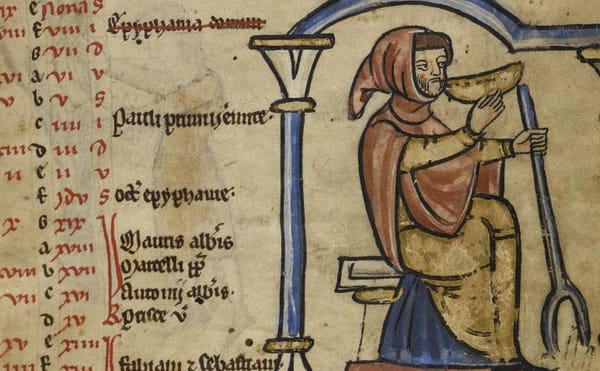 e Nonas
f viii i Epyphania domini
g vii d
xvi a vi i
v b v s
c iiii i Pauli primi
d iii d
ii e ii v
f Idus s Oct epyphanie.
x g xix
a xviii Mauri abbis
b xvii Marcelli pp
vii c xvi Antonii abbis.
d xv Prisce v
xv e xiiii
Fabiani ⁊ Sebastiani